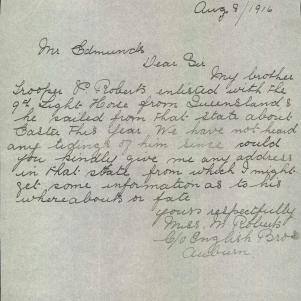 Aug 8/1916
Mr Edmunds
Dear Sir
My brother
Trooper P Roberts enlisted with the
9th Light Horse from Queensland &
he sailed from that state about
Easter this Year. We have not heard
any tidings of him since would
you kindly give me any address
in that state from which I might
get some information as to his
whereabouts or fate
yours respectfully
Miss. M Roberts
C/o English Bros
Auburn